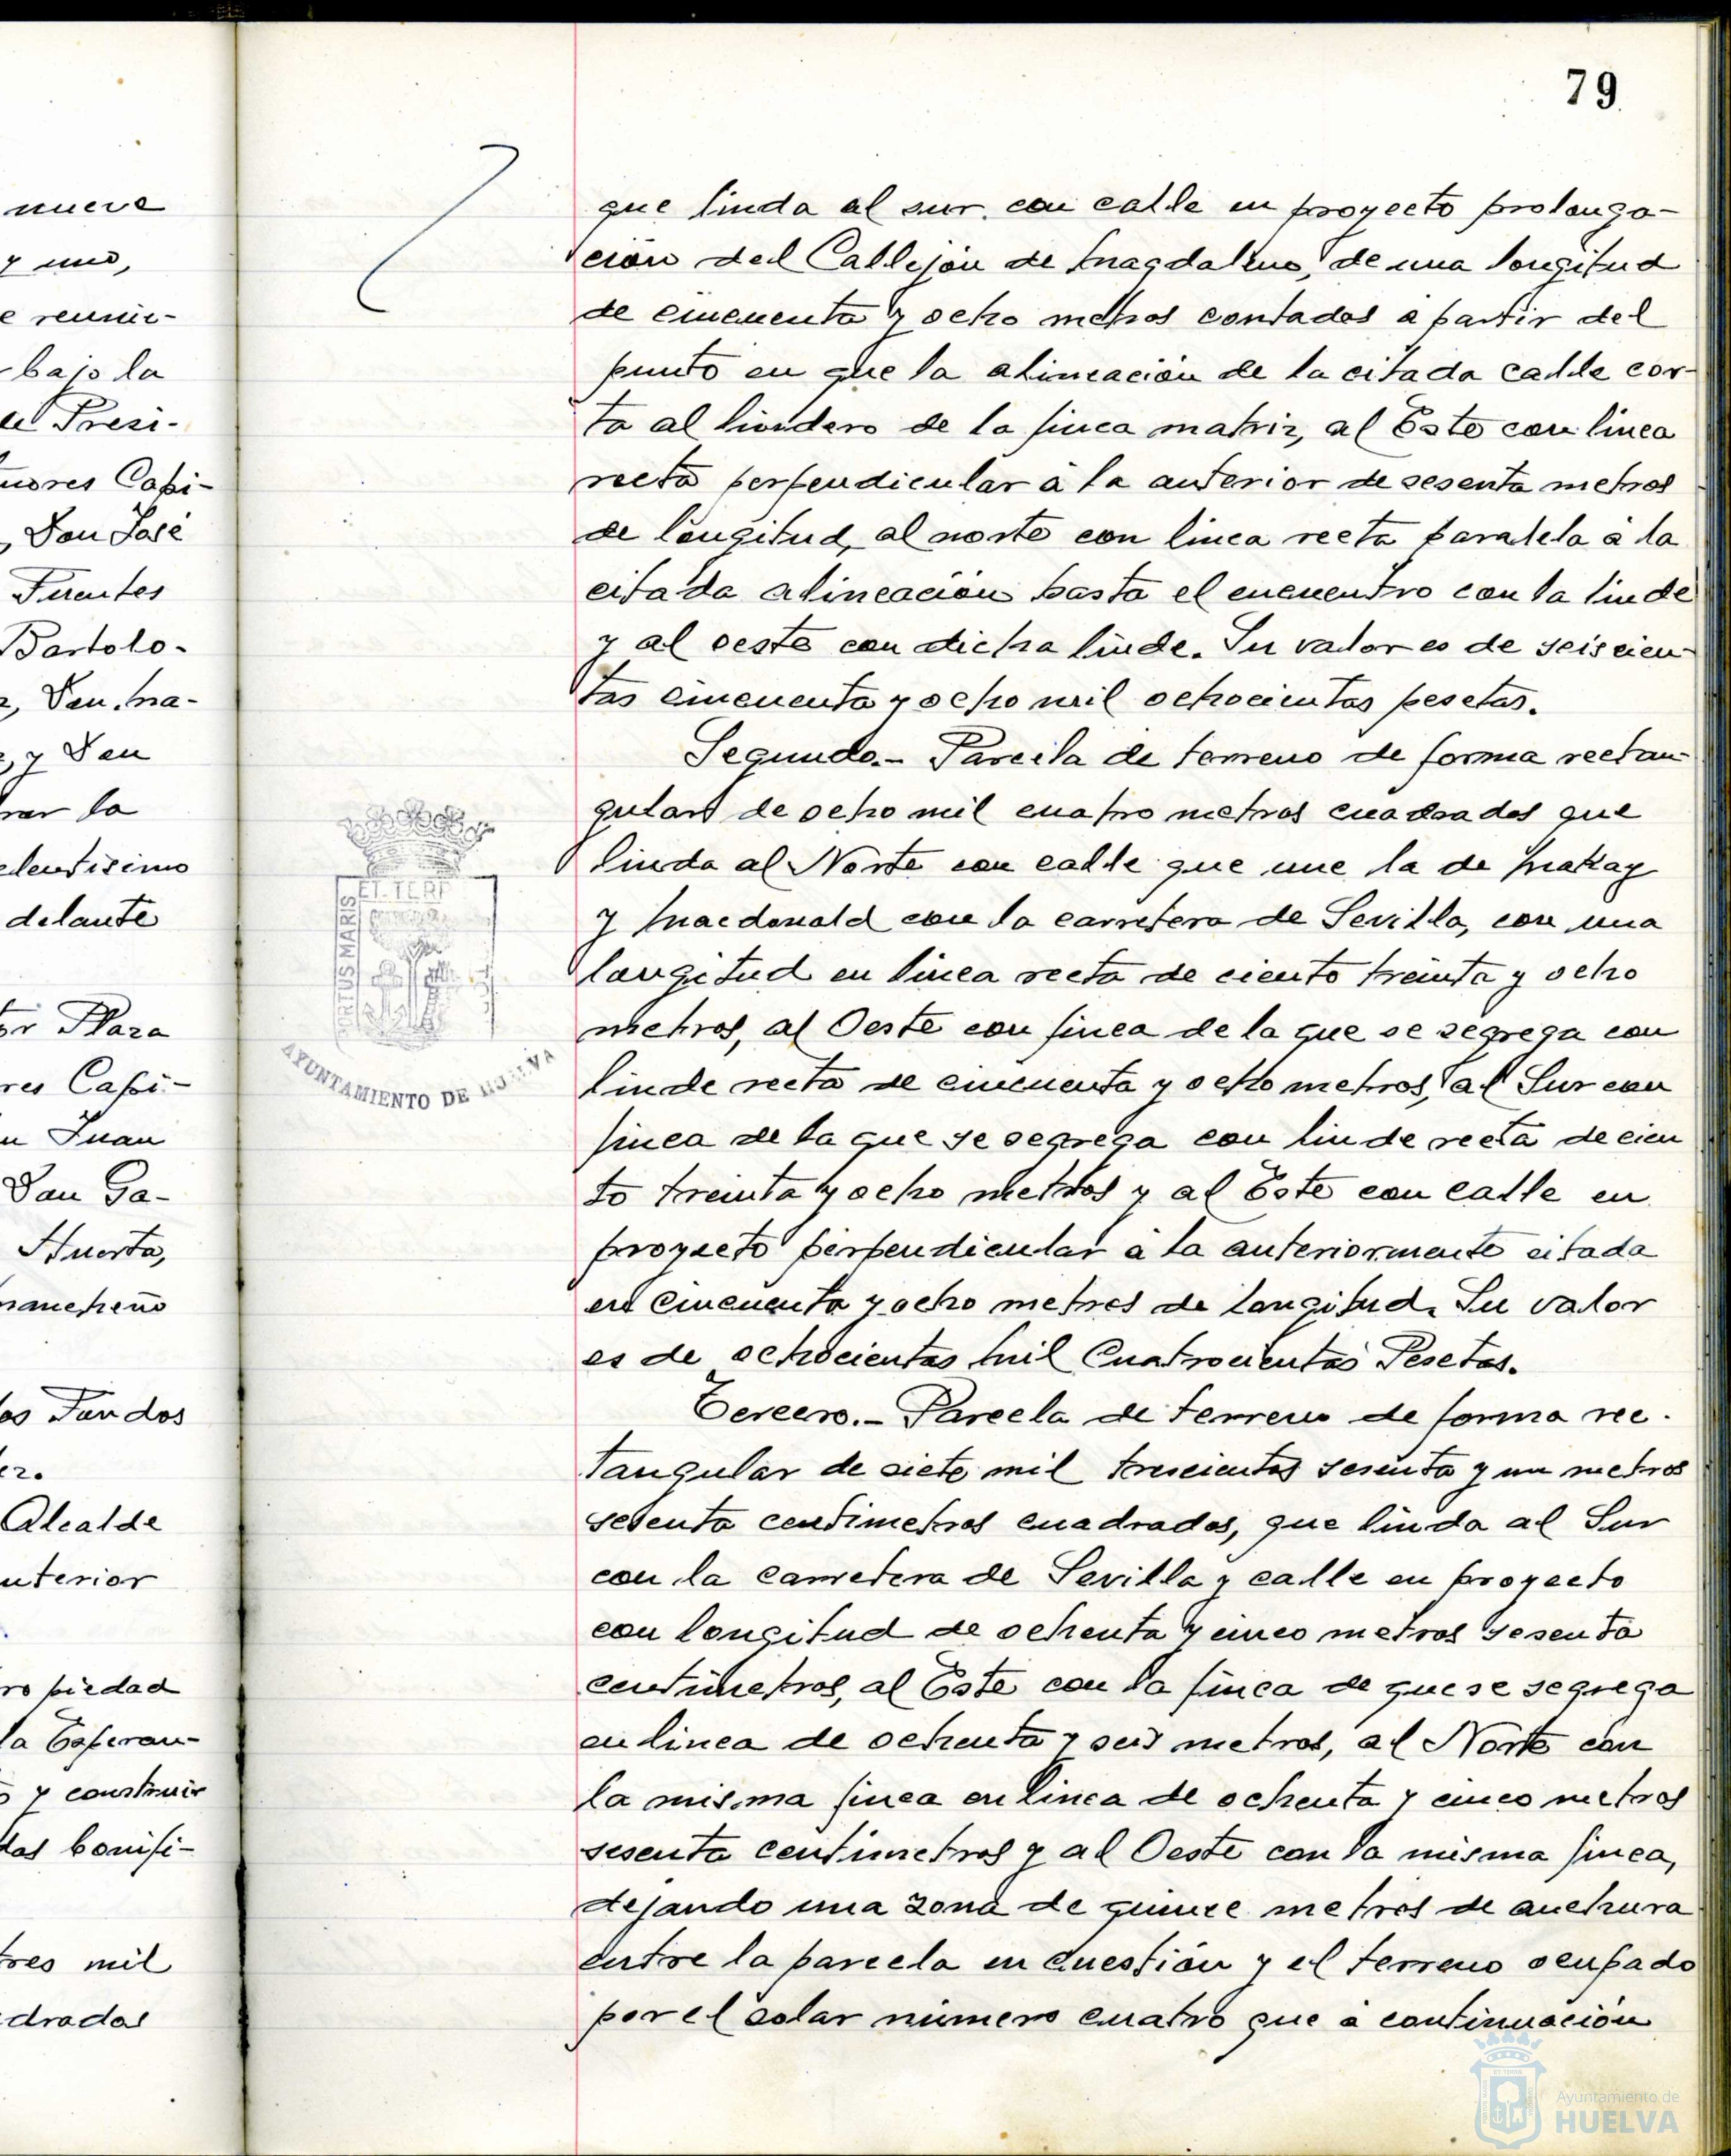 79
nueve
y uno,
e reunie-
bajo la
Presi-
ñores Capi-
, Don José
Fuentes
Bartolo-
, Don Ma-
, y Don
rar la
elentisimo
delante
or Plaza
res Capi-
n Juan
Don Ga-
Huerta,
mancheño
os Fondos
ez.
Alcalde
nterior
ropiedad
la Esperan-
y construir
das bonifi-
tres mil
drados
que linda al sur con calle en proyecto prolonga-
ción del Callejón de Magdalena, de una longitud
de cincuenta y ocho metros contados a partir del
punto en que la alineación de la citada calle cor-
ta al lindero de la finca matriz, al Este con linea
recta perpendicular á la anterior de sesenta metros
de longitud, al norte con linea recta paralela á la
citada alineación hasta el encuentro con la linde
y al oeste con dicha linde. Su valor es de seiscien-
tas cincuenta y ocho mil ochocientas pesetas.
Segundo.- Parcela de terreno de forma rectan-
gular de ocho mil cuatro metros cuadrados que
linda al Norte con calle que une la de Makay
y Macdonald con la carretera de Sevilla, con una
longitud en linea recta de ciento treinta y ocho
metros, al Oeste con finca de la que se segrega con
linde recta de cincuenta y ocho metros, al Sur con
finca de la que se segrega con linde recta de cien
to treinta y ocho metros y al Este con calle en
proyecto perpendicular á la anteriormente citada
en cincuenta y ocho metros de longitud. Su valor
es de ochocientas mil Cuatrocientas Pesetas.
Tercero.- Parcela de terreno de forma rec-
tangular de siete mil trescientos sesenta y un metros
sesenta centimetros cuadrados, que linda al Sur
con la carretera de Sevilla y calle en proyecto
con longitud de ochenta y cinco metros sesenta
centimetros, al Este con la finca de que se segrega
en linea de ochenta y seis metros, al Norte con
la misma finca en linea de ochenta y cinco metros
sesenta centimetros y al Oeste con la misma finca,
dejando una zona de quince metros de anchura
entre la parcela en cuestión y el terreno ocupado
por el solar número cuatro que á continuación
PORTUS MARIS ET TERR
AYUNTAMIENTO DE HUELVA
Ayuntamiento de
HUELVA